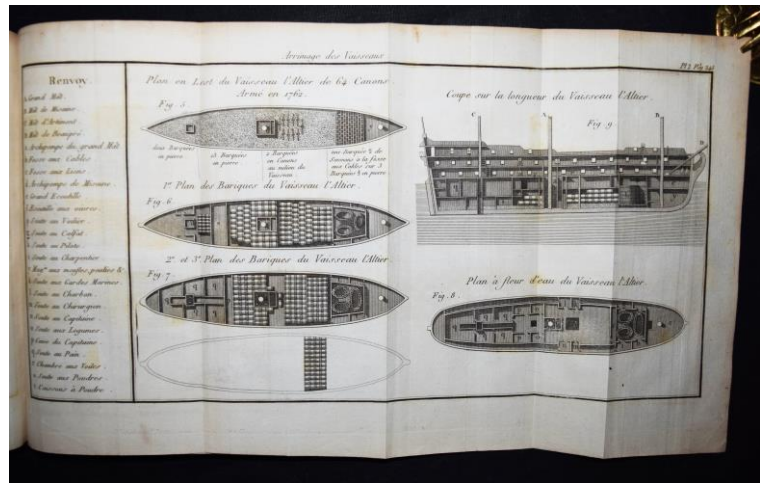 Arrimage des Vaisseaux
Pl. 2. Pag. 245
Renvoy.
Grand Mât.
Mât de Misaine.
Mât d'Artimont.
Mât de Beaupré.
Archipompe du grand Mât.
Fosse aux Cables
Fosse aux Lions
Archipompe de Misaine
Grand Ecoutille
Ecoutille aux vivres
Soute au Voilier
Soute au Calfat
Soute au Pilote
Soute au Charpentier
Soute aux Gardes Marines
Soute au Charbon
Soute au Chirurgien
Soute au Capitaine
Soute aux Legumes
Cave du Capitaine
Soute au Pain
Chambre aux Voiles
Soute aux Poudres
Caissons à Poudre
Plan en Lest du Vaisseau l'Altier de 64 Canons.
Armé en 1762.
Fig. 5
deux Barquées
en pierre
Barquées
en pierre
Barquées
en Canons
au milieu du
Vaisseau
1er Plan des Bariques du Vaisseau l'Altier.
Fig. 6
2e et 3e Plan des Bariques du Vaisseau l'Altier.
Fig. 7
Coupe sur la longueur du Vaisseau l'Altier.
Fig 9
C
A
B
Plan à fleur d'eau du Vaisseau l'Altier
Fig. 8